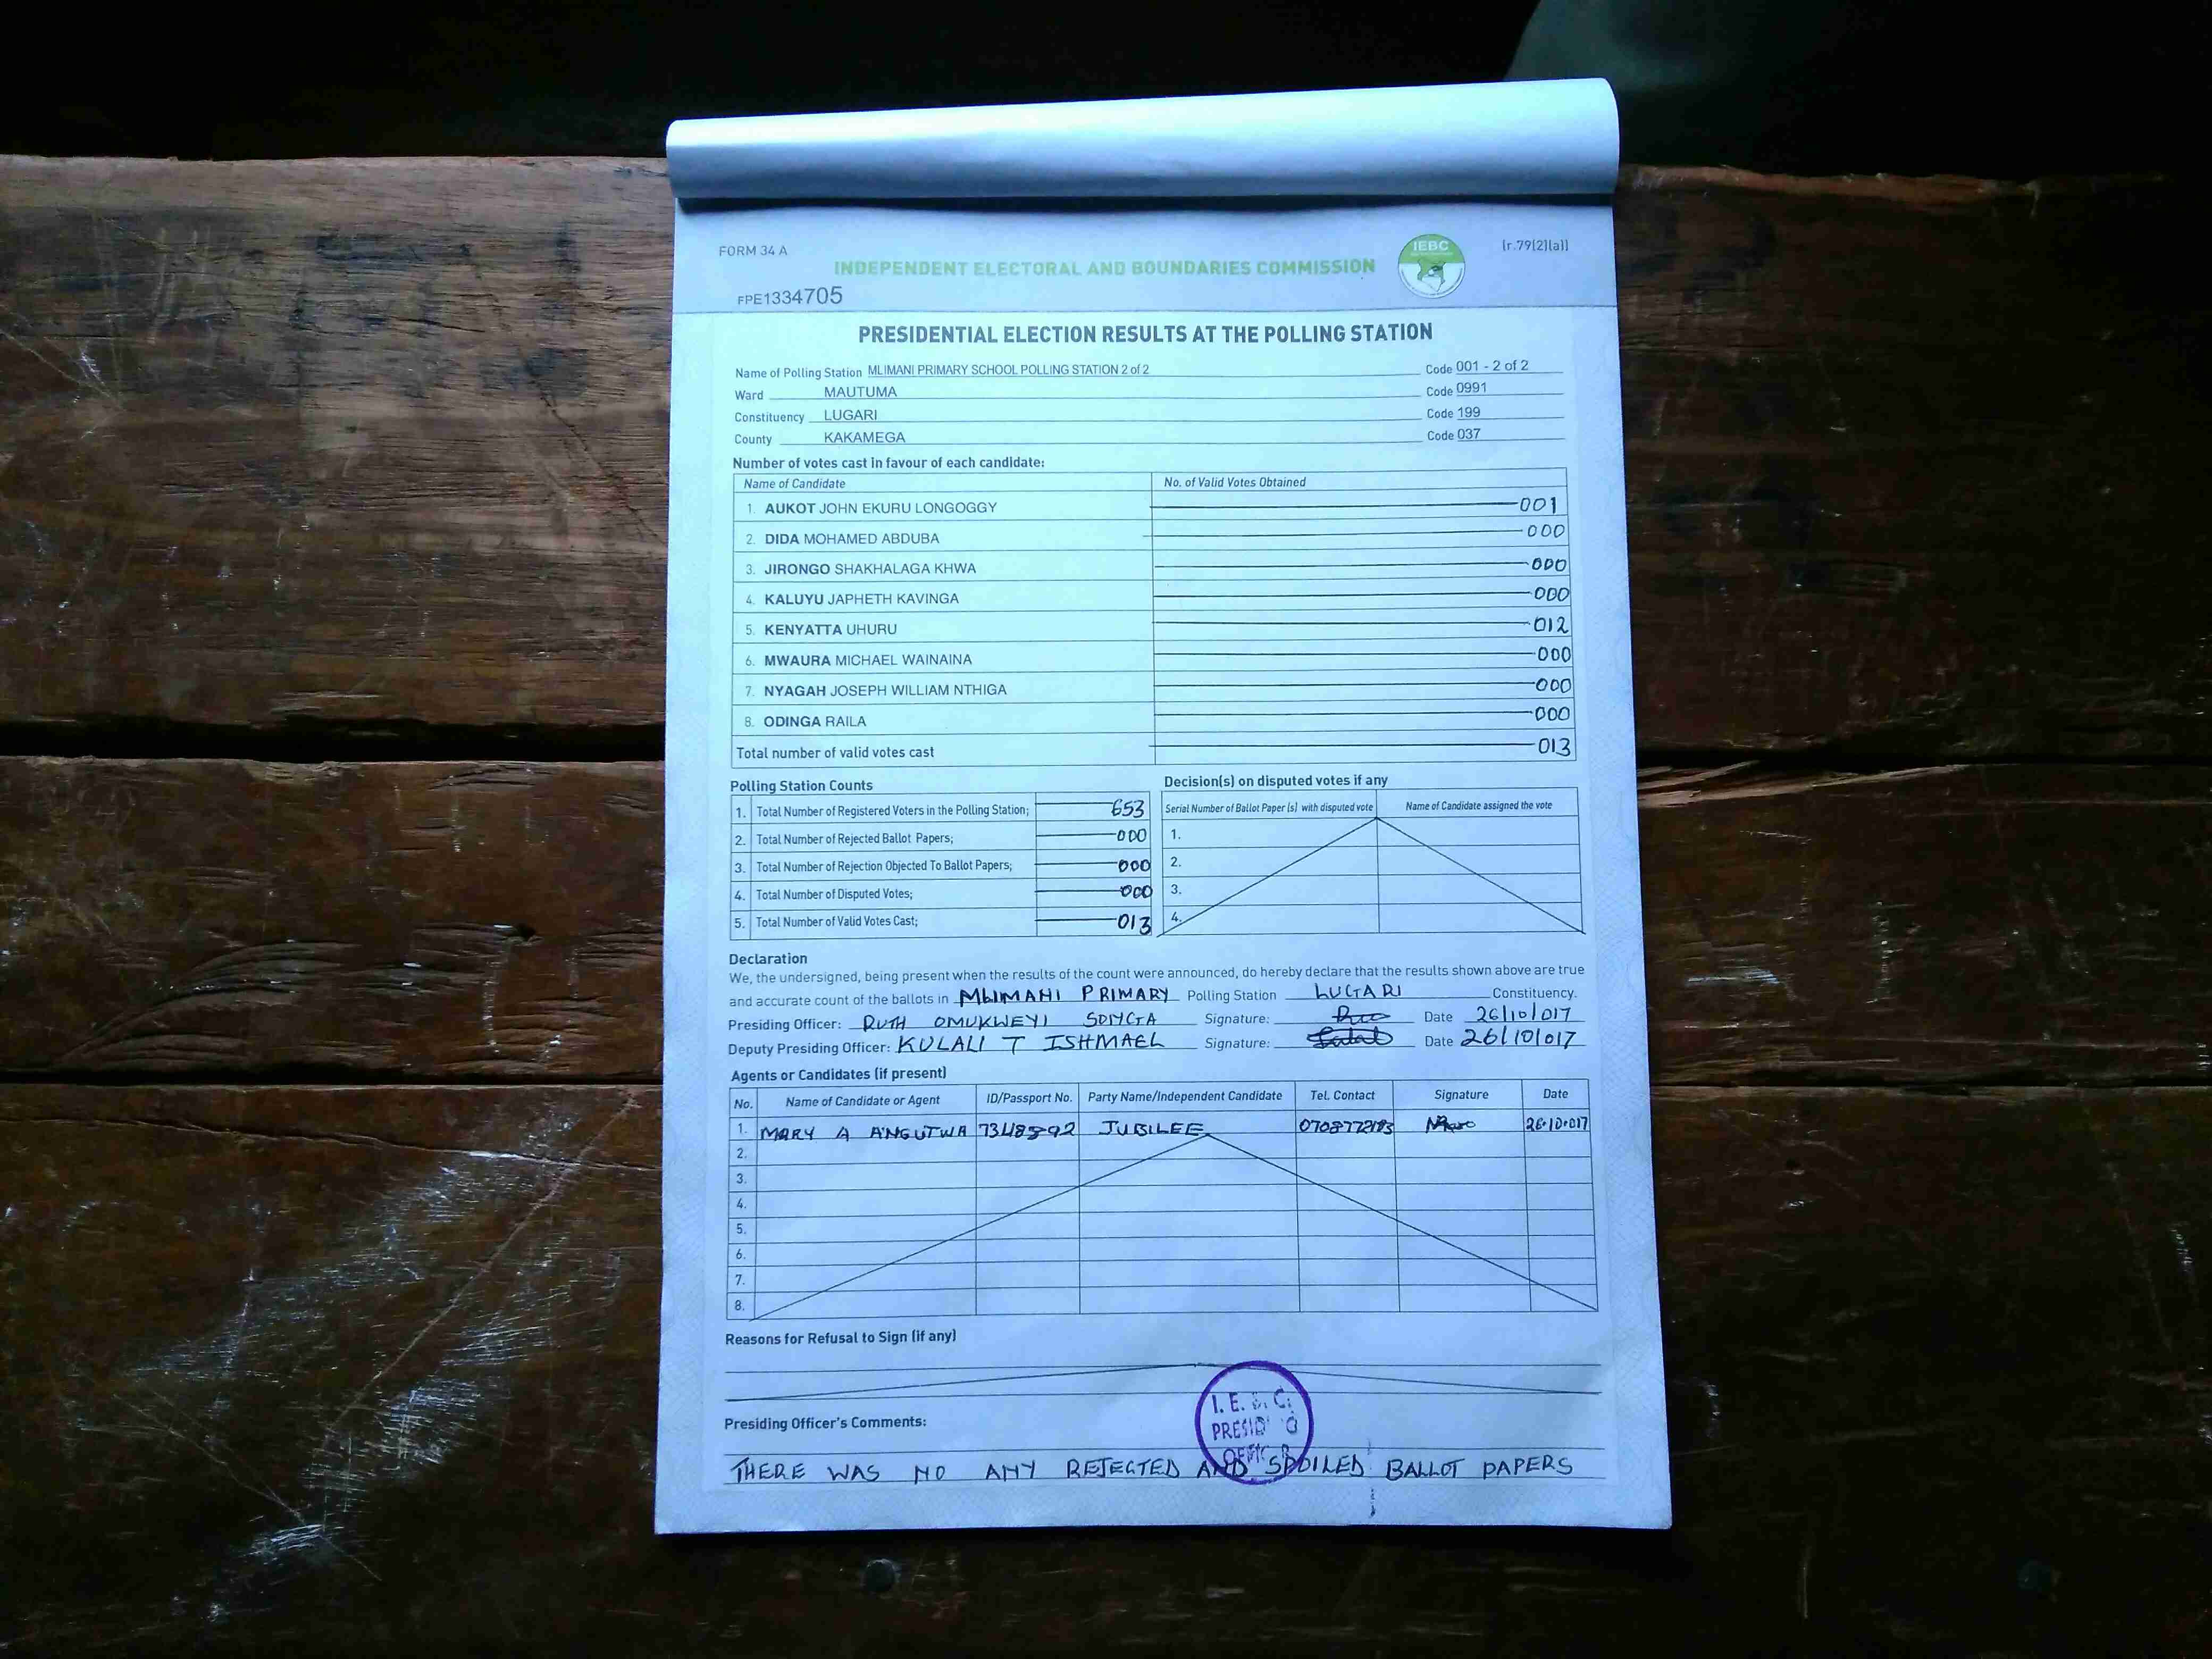 FORM 34 A
INDEPENDENT ELECTORAL AND BOUNDARIES COMMISSION
IEBC
(r.79(2)(a))
FPE1334705
PRESIDENTIAL ELECTION RESULTS AT THE POLLING STATION
Name of Polling Station MLIMANI PRIMARY SCHOOL POLLING STATION 2 of 2 Code 001 - 2 of 2
Ward MAUTUMA Code 0991
Constituency LUGARI Code 199
County KAKAMEGA Code 037
Number of votes cast in favour of each candidate:
Name of Candidate No. of Valid Votes Obtained
1. AUKOT JOHN EKURU LONGOGGY 001
2. DIDA MOHAMED ABDUBA 000
3. JIRONGO SHAKHALAGA KHWA 000
4. KALUYU JAPHETH KAVINGA 000
5. KENYATTA UHURU 012
6. MWAURA MICHAEL WAINAINA 000
7. NYAGAH JOSEPH WILLIAM NTHIGA 000
8. ODINGA RAILA 000
Total number of valid votes cast 013
Polling Station Counts
1. Total Number of Registered Voters in the Polling Station; 653
2. Total Number of Rejected Ballot Papers; 000
3. Total Number of Rejection Objected To Ballot Papers; 000
4. Total Number of Disputed Votes; 000
5. Total Number of Valid Votes Cast; 013
Decision(s) on disputed votes if any
Serial Number of Ballot Paper (s) with disputed vote Name of Candidate assigned the vote
1.
2.
3.
4.
Declaration
We, the undersigned, being present when the results of the count were announced, do hereby declare that the results shown above are true
and accurate count of the ballots in MLIMANI PRIMARY Polling Station LUGARI Constituency.
Presiding Officer: RUTH OMUKWEYI Signature: Date 26/10/017
Deputy Presiding Officer: KULALI T ISHMAEL Signature: Date 26/10/017
Agents or Candidates (if present)
No. Name of Candidate or Agent ID/Passport No. Party Name/Independent Candidate Tel. Contact Signature Date
1. MARY A ANGUTWA JUBILEE 26.10.017
2.
3.
4.
5.
6.
7.
8.
Reasons for Refusal to Sign (if any)
Presiding Officer's Comments:
THERE WAS NO ANY REJECTED AND SPOILED BALLOT PAPERS